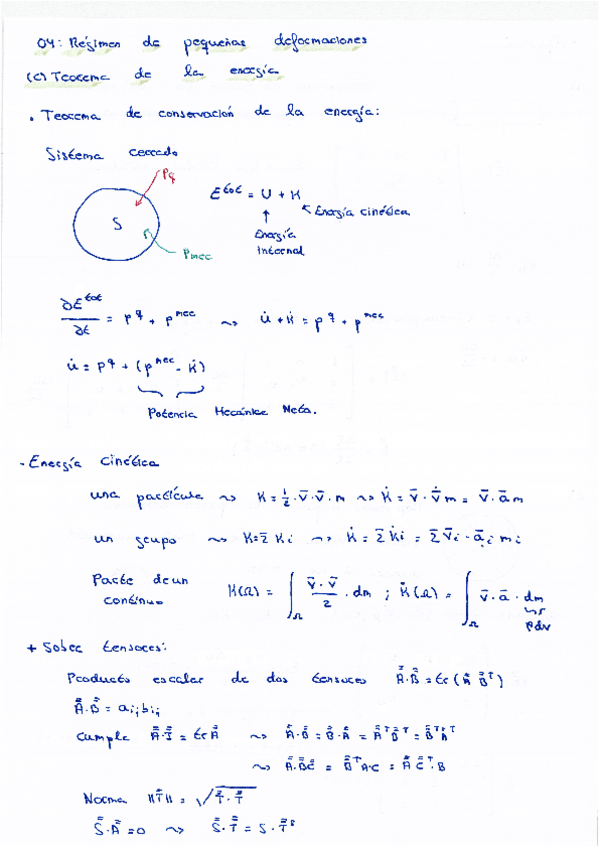 04: Régimen de pequeñas deformaciones
(c) Teorema de la energía
• Teorema de conservación de la energía:
Sistema cerrado
Pq
S
Pmec
E^tot = U + K
Energía cinética
Energía
Internal
∂E^tot/∂t = P^q + P^mec ⇝ U̇ + K̇ = P^q + P^mec
u̇ = P^q + (P^mec - K̇)
Potencia Mecánica Neta.
- Energía cinética
una partícula ⇝ K = 1/2 · v̄ · v̄ · m ⇝ K̇ = v̄ · v̄̇ m = v̄ · ā m
un grupo ⇝ K = Σ Ki ⇝ K̇ = Σ K̇i = Σ v̄i · āi mi
Parte de un
continuo
K(Ω) = ∫Ω (v̄ · v̄)/2 · dm ; K̇(Ω) = ∫Ω v̄ · ā · dm
ρdv
+ Sobre tensores:
Producto escalar de dos tensores A̿ · B̿ = tr(A̿ B̿^T)
A̿ · B̿ = aij bij
Cumple A̿ · I̿ = tr A̿ ⇝ A̿ · B̿ = B̿ · A̿ = A̿^T B̿^T = B̿^T A̿^T
⇝ A̿ · B̿C̿ = B̿^T A · C = A̿ C̿^T · B
Norma ‖T̿‖ = √(T̿ · T̿)
S̿ · A̿ = 0 ⇝ S̿ · T̿ = S · T̿^s